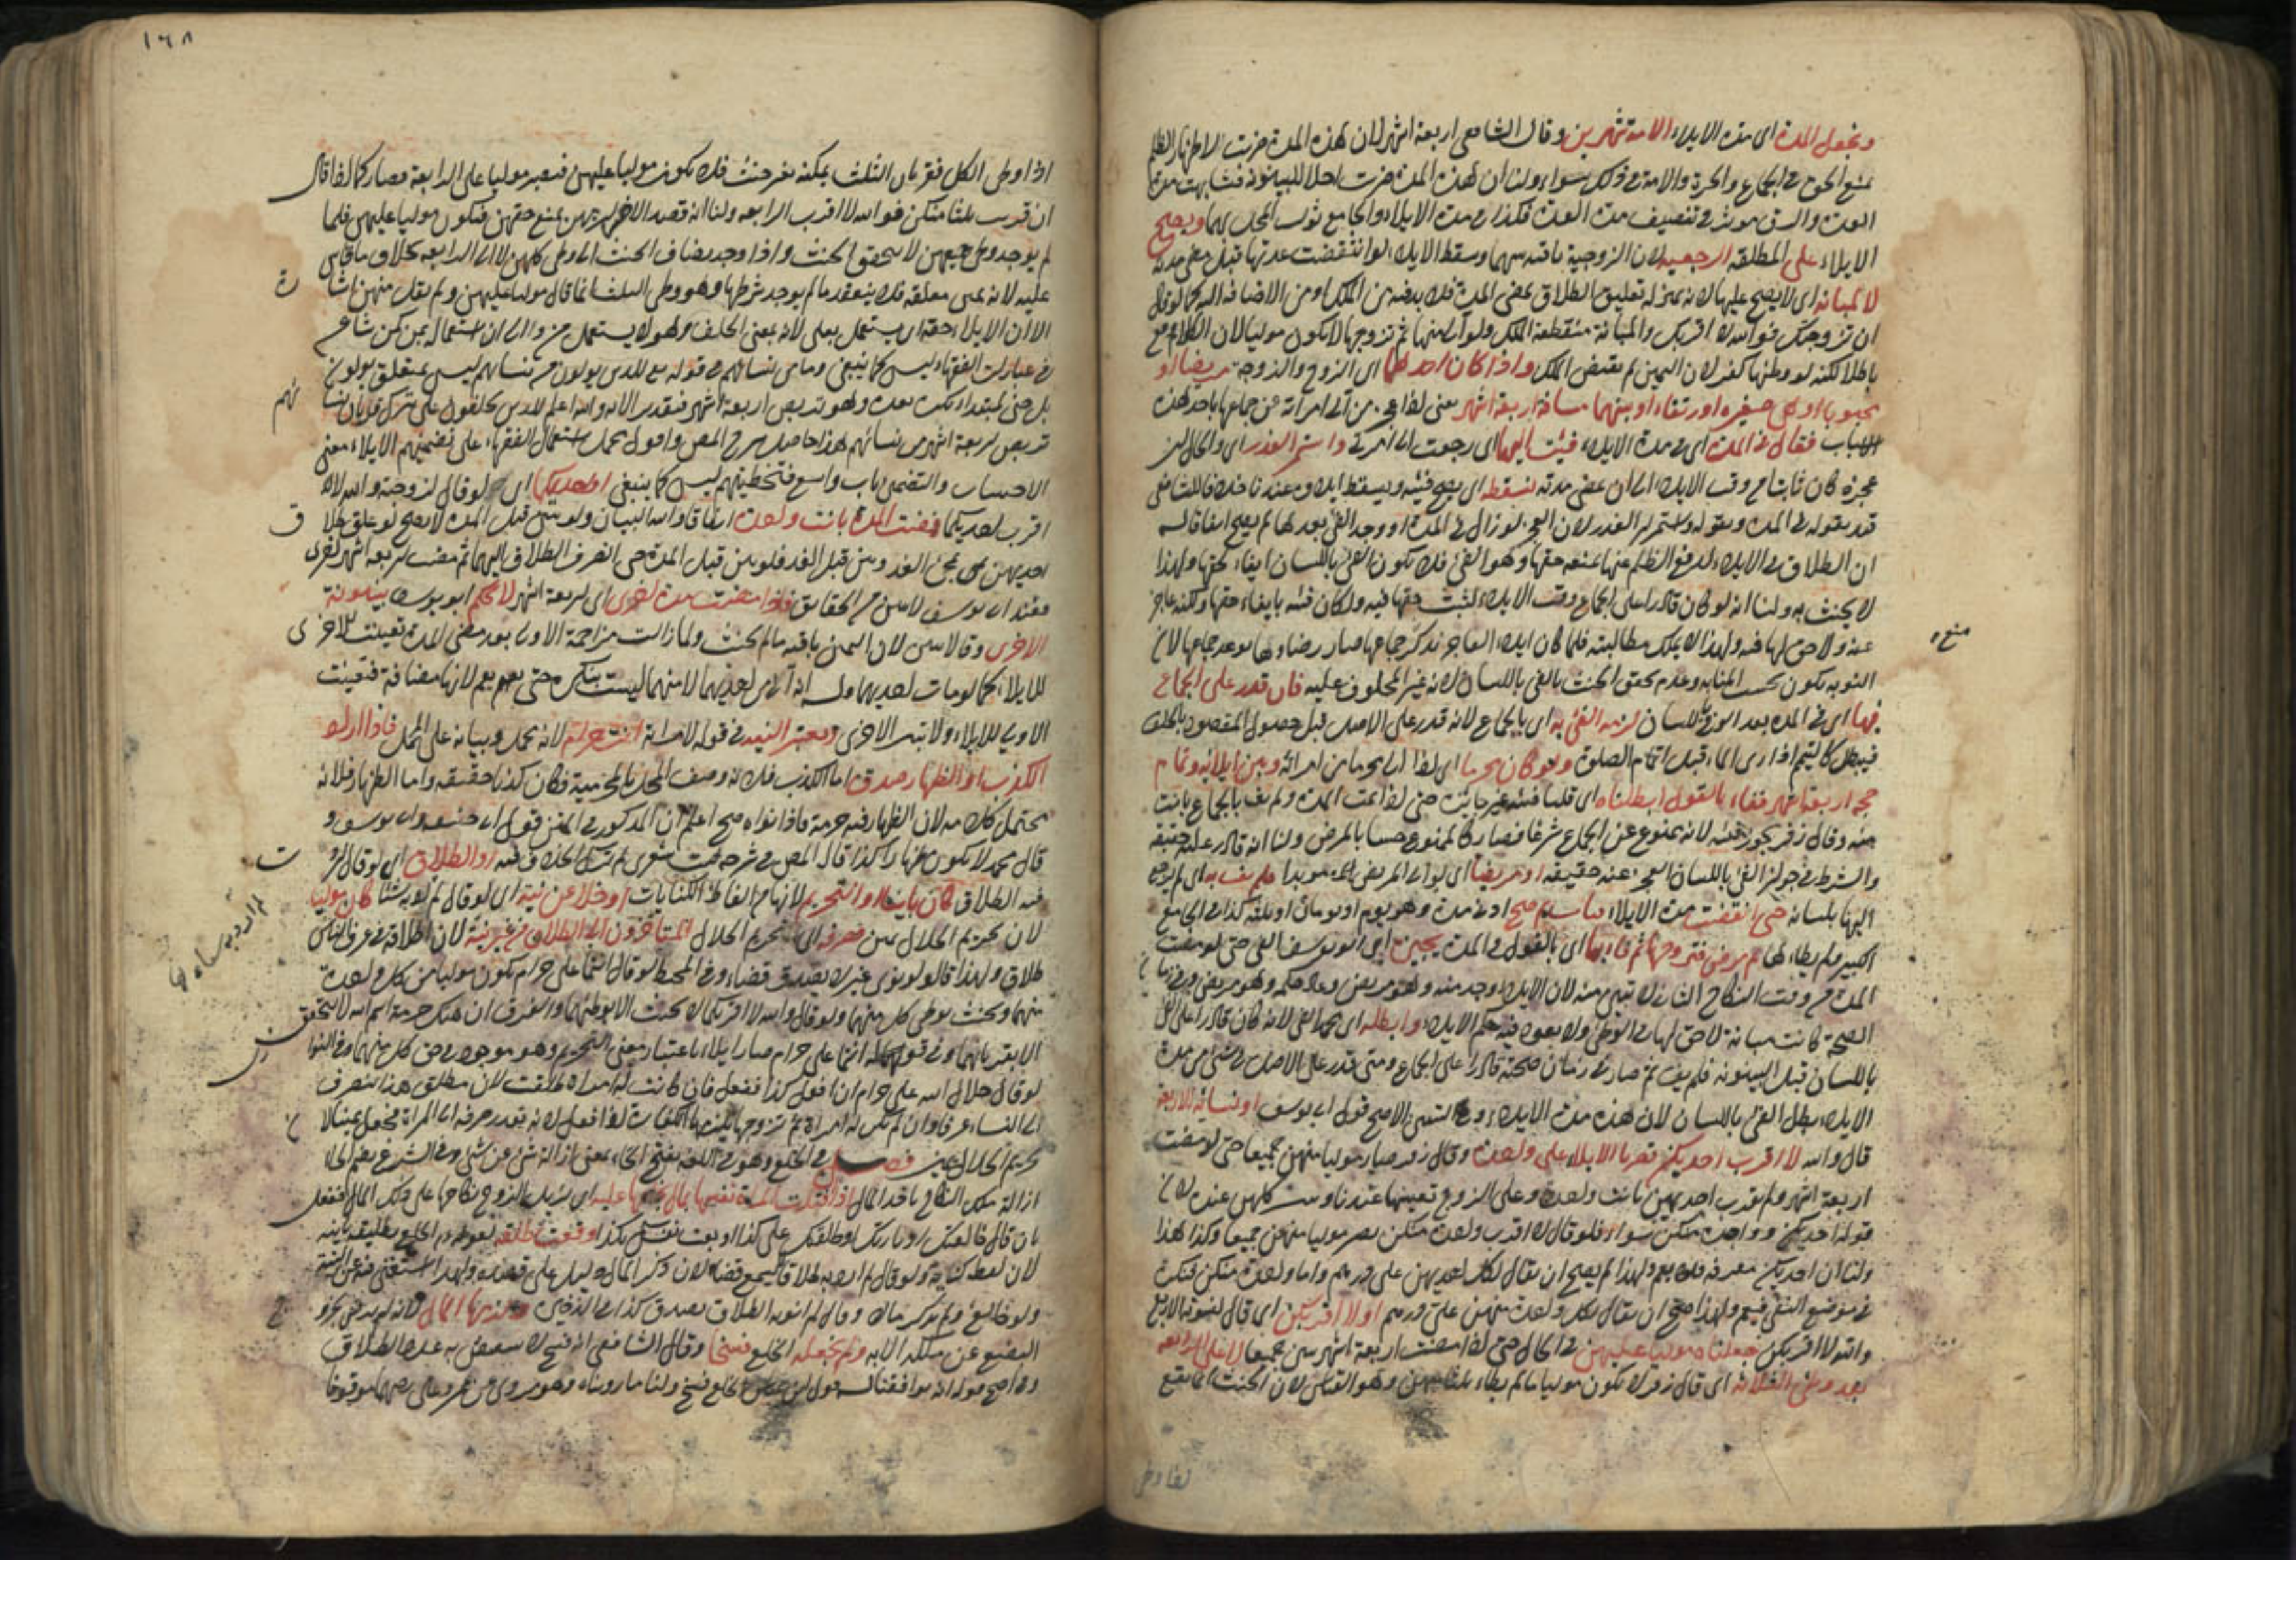 ونجعل المدة اى مدة الايلاء للامة شهرين وقال الشافعى اربعة اشهر لان هذه المدة ضربت لاظهار الظلم
بمنع الحق فى الجماع والحرة والامة فى ذلك سواء ولنا ان هذه المدة ضربت اجلا للبينونة فشابهت مدة
العدة والرق موثر فى تنصيف مدة العدة فكذا فى مدة الايلاء والجامع ويصح
الايلاء على المطلقة الرجعية لان الزوجية باقية بينهما وسقط الايلاء لو انقضت عدتها قبل مضى مدته
لا المبانة اى لا يصح عليها لانه بمنزلة تعليق الطلاق بمضى المدة فلا بد فيه من الملك او من الاضافة اليه كما لو قال
ان تزوجتك فوالله لا اقربك والمبانة منقطعة الملك ولو آلى منها ثم تزوجها لا يكون موليا لان الكلام وقع
باطلا لكنه لو وطئها كفر لان اليمين لم يقتض الملك واذا كان احدهما اى الزوج والزوجة مريضا او
مجبوبا او هى صغيرة او رتقاء او بينهما مسافة اربعة اشهر يعنى اذا عجز من آلى امرأته عن جماعها باحد هذه
الاسباب فقال فى المدة اى فى مدة الايلاء فئت اليها اى رجعت الى امرأتى واستمر العذر اى والحال ان
عجزه كان ثابتا من وقت الايلاء الى ان تمضى مدته نسقطه اى يصح فيئه ويسقط ايلاؤه عندنا خلافا للشافعى
قيد بقوله فى المدة وبقوله واستمر العذر لان العجز لو زال فى المدة او وجد الفئ بعدها لم يصح اتفاقا له
ان الطلاق فى الايلاء لدفع الظلم عنها بمنعه حقها وهو الفئ فلا يكون الفئ باللسان ايفاء لحقها ولهذا
لا يحنث به ولنا انه لو كان قادرا على الجماع وقت الايلاء لثبت حقها فيه ولكان فيئه بايفاء حقها ولكنه عاجز
عنه ولا حق لها فيه ولهذا لا يملك مطالبته فلما كان ايلاء العاجز بذكر جماعها صار رضاؤها بوعد جماعها لان
التوبة تكون بحسب الجناية وعدم تحقق الحنث بالفئ باللسان لانه غير المحلوف عليه فان قدر على الجماع
فيها اى فى المدة بعد الفئ باللسان لزمه الفئ به اى بالجماع لانه قدر على الاصل قبل حصول المقصود بالخلف
فيبطل كالمتيمم اذا رأى الماء قبل اتمام الصلوة ولو كان محرما اى اذا آلى محرما من امرأته وبين ايلائه وتمام
حجه اربعة اشهر ففاء بالقول ابطلناه اى قلنا فيئه غير جائز حتى اذا تمت المدة ولم يف بالجماع بانت
منه وقال زفر يجوز فيئه لانه ممنوع عن الجماع شرعا فصار كالممنوع حسا بالمرض ولنا انه قادر عليه حقيقة
والشرط فى جواز الفئ باللسان العجز عنه حقيقة او مريضا اى لو آلى المريض مؤبدا ولم يف به اى لم يرجع
اليها بلسانه حتى انقضت مدة الايلاء فبانت ثم صح ادنى مدة وهو يوم او يومان او ثلثة كذا فى الجامع
الكبير ولم يطأها ثم مرض فتزوجها ثم فاء بها اى بالقول فى المدة يجيزه اى ابو يوسف الفئ حتى لو مضت
المدة من وقت النكاح الثانى لا تبين منه لان الايلاء وجد منه وهو مريض وعاد حكمه وهو مريض وفى زمان
الصحة كانت مبانة لا حق لها فى الوطئ ولا يعود فيه حكم الايلاء وابطله اى محمد الفئ لانه كان قادرا على الفئ
باللسان قبل البينونة فلم يف ثم صار فى زمان صحته قادرا على الجماع ومتى قدر على الاصل فى شئ من مدة
الايلاء بطل الفئ باللسان لان هذه مدة الايلاء وفى الاصح قول ابى يوسف او لنسائه الاربع
قال والله لا اقرب احديكن قصرنا الايلاء على واحدة وقال زفر صار موليا منهن جميعا حتى لو مضت
اربعة اشهر ولم يقرب احديهن بانت واحدة وعلى الزوج تعيينها عندنا وبنت كلهن عنده لان
قوله احديكن وواحدة منكن سواء فلو قال لا اقرب واحدة منكن يصير موليا منهن جميعا وكذا هذا
ولنا ان احديكن معرفة فلا يعم ولهذا لم يصح ان يقال لكل احديهن على درهم واما واحدة منكن فنكرة
فى موضع النفى فيعم ولهذا صح ان يقال لكل واحدة منهن على درهم او لا اقربكن اى قال لنسوته الاربع
والله لا اقربكن جعلناه موليا عليهن فى الحال حتى اذا مضت اربعة اشهر تبين جميعا لا على الرابعة
بعد وطئ الثلاثة اى قال زفر لا يكون موليا ما لم يطأ ثلثا منهن وهو القياس لان الحنث انما يقع
منع ه
اذا وطى
١٦٨
اذا وطى الكل فقربان الثلث يمكنه بغير حنث فلا يكون موليا عليهن فيصير موليا على الرابعة فصار كما اذا قال
ان قربت ثلثا منكن فوالله لا اقرب الرابعة ولنا انه قصد الاضرار بهن بمنع حقهن فيكون موليا عليهن فلما
لم يوجد وطئ جميعهن لا يتحقق الحنث واذا وجد يضاف الحنث الى وطئ كلهن لا الى الرابعة بخلاف ما قاس
عليه لانه يمين معلقة فلا ينعقد ما لم يوجد شرطها وهو وطئ الثلث انما قال موليا عليهن ولم يقل منهن اشارة
الى ان الايلاء حقه ان يستعمل بعلى لانه بمعنى الحلف وهو لا يستعمل بمن والى ان استعماله بمن كمن شاع
فى عبارات الفقهاء ليس كما ينبغى وما من نسائهم فى قوله تع للذين يولون من نسائهم ليس بمتعلق بيولون
تربص اربعة اشهر من نسائهم هذا حاصل شرح المص واقول يحمل استعمال الفقهاء على تضمينهم الايلاء معنى
والتضمين باب واسع فتخطيتهم ليس كما ينبغى او احديكما اى لو قال لزوجتيه والله لا
اقرب احديكما فمضت المدة بانت واحدة اتفاقا واليه البيان ولو بين قبل المدة لا يصح كما لو علق طلاق
احديهن بمجئ الغد وبين قبل الغد فلو بين قبل المدة حتى انصرف الطلاق اليها ثم مضت اربعة اشهر اخرى
فاذا مضت مدة اخرى اى اربعة اشهر لا يحكم ابو يوسف ببينونة
الاخرى وقالا تبين لان اليمين باقية ما لم يحنث ولما زالت مزاحمة الاولى بعد مضى المدة تعينت الاخرى
للايلاء كما لو مات احديهما وله انه آلى من احديهما لا منهما ليست بنكرة حتى تعم لانها مضافة فتعينت
الاولى للايلاء ولا تبين الاخرى ونعتبر النية فى قوله لامرأته انت حرام لانه مجمل وبيانه على المجمل فاذا اراد
الكذب او الظهار صدق اما الكذب فلانه وصف المحللة بالحرمة فكان كذبا حقيقة واما الظهار فلانه
يحتمل كلامه لان الظهار فيه حرمة فاذا نواه صح اعلم ان المذكور فى المتن قول ابى حنيفة وابى يوسف و
قال محمد لا يكون ظهارا كذا قال المص فى شرحه او الطلاق اى لو قال اردت
فيه الطلاق كان باينا او التحريم لانها من الفاظ الكنايات او خلا عن نية اى لو قال لم ارد به شيئا كان موليا
لان تحريم الحلال يمين وصرفه اى تحريم الحلال المتأخرون الى الطلاق من غير نية لان اطلاقه فى عرف الناس
طلاق ولهذا قالوا لو نوى غيره لا يصدق قضاء وفى المحيط لو قال انتما على حرام يكون موليا من كل واحدة
منهما ويحنث بوطئ كل منهما ولو قال والله لا اقربكما لا يحنث الا بوطئهما والفرق ان هتك حرمة اسم الله لا يتحقق
الا بقربانهما وفى قوله انتما على حرام صار ايلاء باعتبار معنى التحريم وهو موجود فى حق كل منهما وفى النوازل
لو قال حلال الله على حرام ان افعل كذا ففعل فان كانت له امرأة طلقت لان مطلق هذا ينصرف
الى النساء عرفا وان لم تكن له امرأة ثم تزوجها يلزمها الكفارة اذا فعل لانه تعذر صرفه الى المرأة فجعل يمينا لان
تحريم الحلال يمين فصل فى الخلع وهو فى اللغة بفتح الخاء بمعنى ازالة شئ عن شئ وفى الشرع بضم الخاء
ازالة ملك النكاح باخذ المال اذا افتدت المرأة نفسها بمال يخلعها عليه اى يزيل الزوج نكاحها على ذلك المال ففعل
بان قال خالعتك او بارأتك او طلقتك على كذا او بعت نفسك بكذا وقعت طلقة لقوله عم الخلع تطليقة باينة
لان لفظه كناية ولو قال لم ارد به طلاقا لم يسمع قضاء لان ذكر المال دليل على قصده ولهذا استغنى فيه عن النية
ولو خالع ولم يذكر مالا وقال لم انو به الطلاق يصدق كذا فى الذخيرة ولزمها المال لانه لم يرض بخروج
البضع عن ملكه الا به ولم نجعله الخلع فسخا وقال الشافعى انه فسخ لا ينقص به عدد الطلاق
وفى اصح قوليه انه موافقنا له الخلع فسخ ولنا ما رويناه وهو مروى عن عمر وعلى رضهما موقوفا